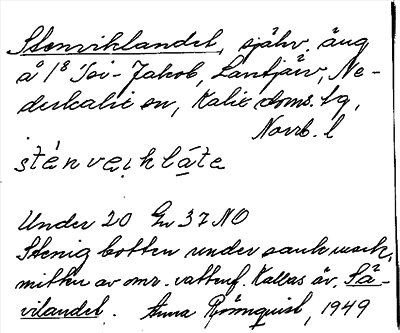 Stenviklandet, själv. äng
å 1⁸ Toi-Jakob, Lantjärv, Ne-
derkalix sn, Kalix doms. tg,
Norrb. l
sténveiklate
Under 20 Gu 37 NO
Stenig botten under sank mark,
mitten av omr. vattenf. Kallas äv. Så-
vilandet. Anna Rönnquist, 1949